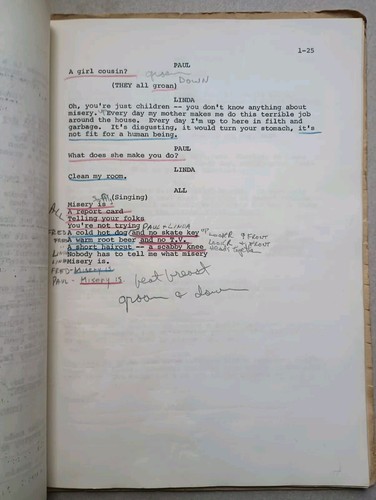 1-25
PAUL
A girl cousin? groan
DOWN
(THEY all groan)
LINDA
Oh, you're just children -- you don't know anything about
misery. Every day my mother makes me do this terrible job
around the house. Every day I'm up to here in filth and
garbage. It's disgusting, it would turn your stomach, it's
not fit for a human being.
PAUL
What does she make you do?
LINDA
Clean my room.
ALL
(Singing)
Misery is
ALL A report card
Telling your folks
You're not trying PAUL & LINDA
FRED A cold hot dog and no skate key UP FRONT
A warm root beer and no T.V. FRONT
A short haircut -- a scabby knee
LINDA Nobody has to tell me what misery
LINDA Misery is.
FRED - Misery is
PAUL - Misery is beat breast
groan & down